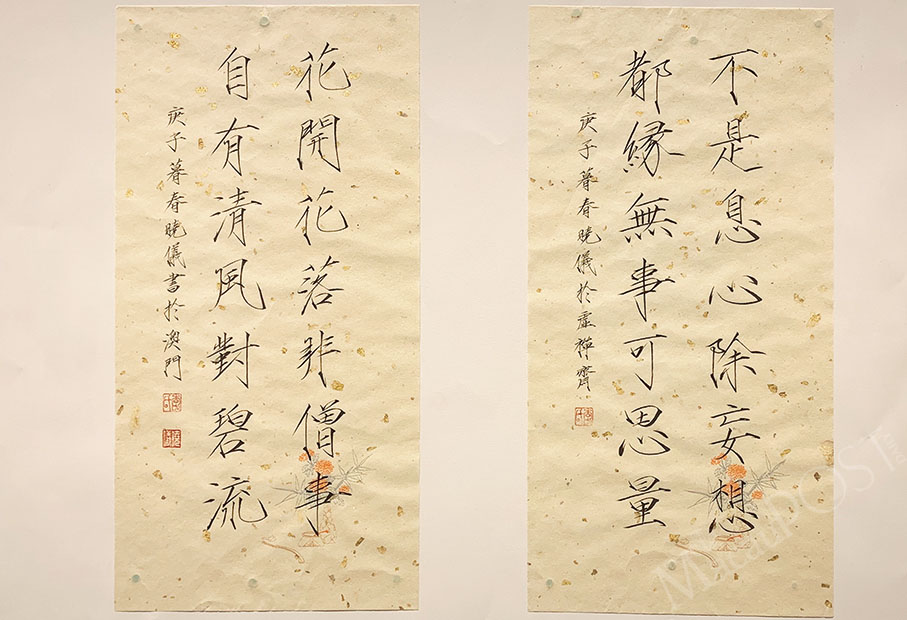 不是息心除妄想
都緣無事可思量
庚子暮春曉儀於虛禪齋
花開花落非僧事
自有清風對碧流
庚子暮春曉儀書於澳門